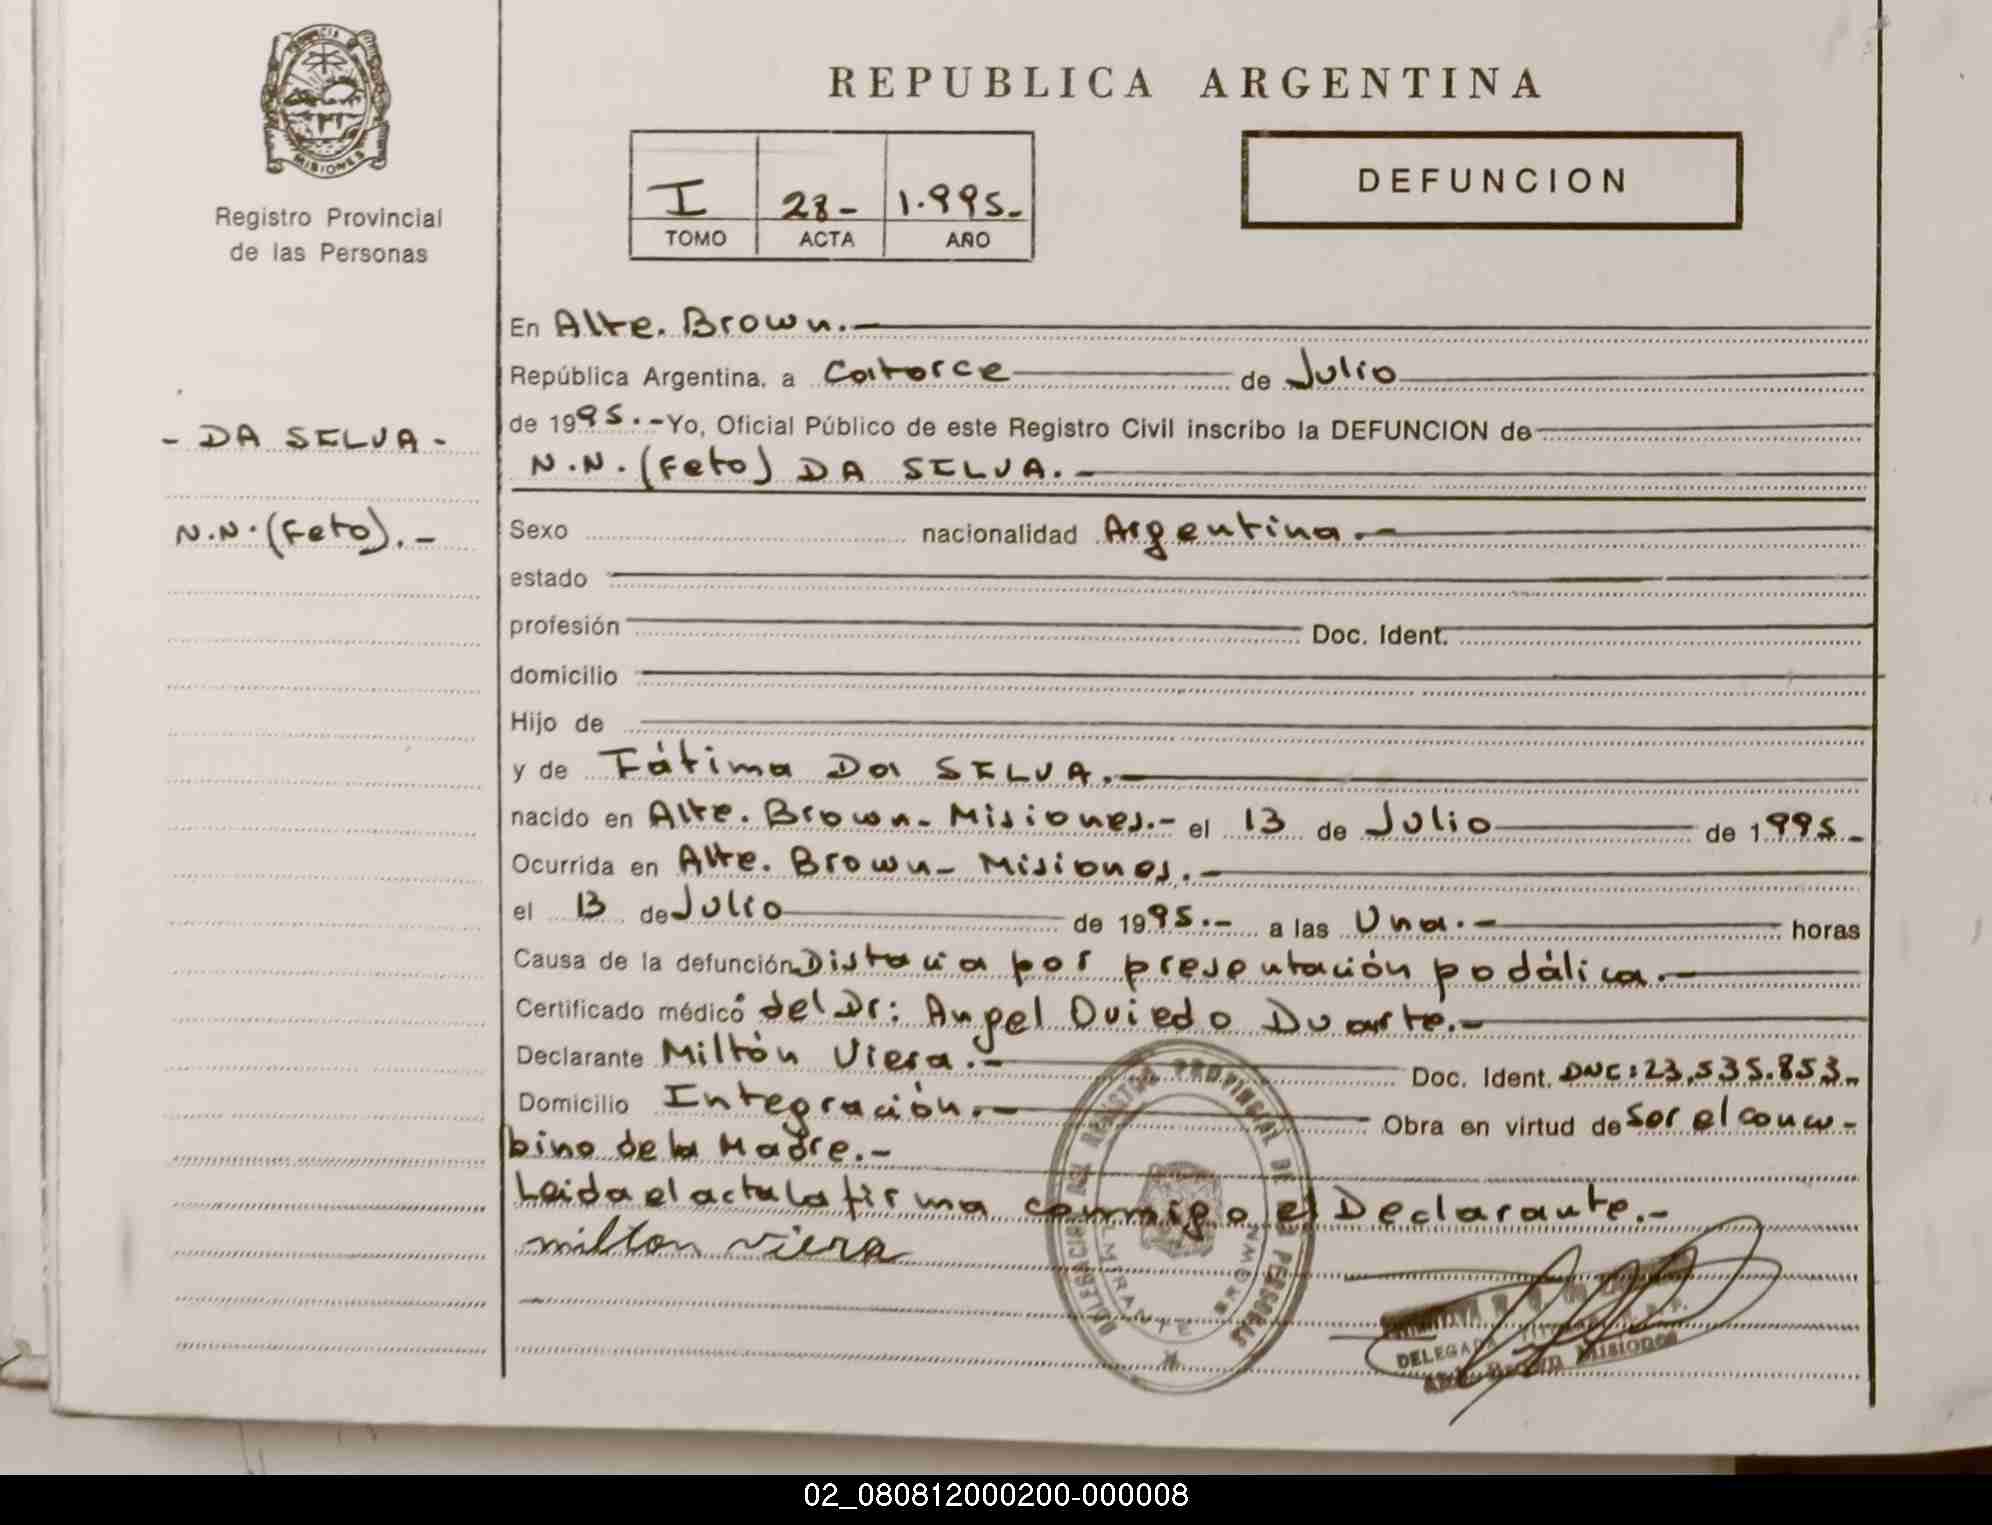 PROVINCIA D
MISIONES
Registro Provincial
de las Personas
REPUBLICA ARGENTINA
I 28- 1.995-
TOMO ACTA AÑO
DEFUNCION
- DA SELVA -
N.N. (Feto).-
En Alte. Brown.-
República Argentina, a Catorce de Julio
de 1995.- Yo, Oficial Público de este Registro Civil inscribo la DEFUNCION de
N.N. (Feto) DA SELVA.-
Sexo nacionalidad Argentina.-
estado
profesión Doc. Ident.
domicilio
Hijo de
y de Fátima Da SELVA.-
nacido en Alte. Brown- Misiones.- el 13 de Julio de 1995-
Ocurrida en Alte. Brown- Misiones.-
el 13 de Julio de 1995.- a las Una.- horas
Causa de la defunción Distocia por presentación podálica.-
Certificado médico del Dr: Angel Oviedo Duarte.-
Declarante Miltón Viera.- Doc. Ident. DNI: 23.535.853-
Domicilio Integración.- Obra en virtud de Ser el concu-
bino de la Madre.-
Leida el acta la firma conmigo el Declarante.-
milton viera
DELEGACION DEL REGISTRO PROVINCIAL DE LAS PERSONAS
ALMIRANTE BROWN
DELEGADA TITULAR R.P.P.
Alte. Brown Misiones
02_080812000200-000008